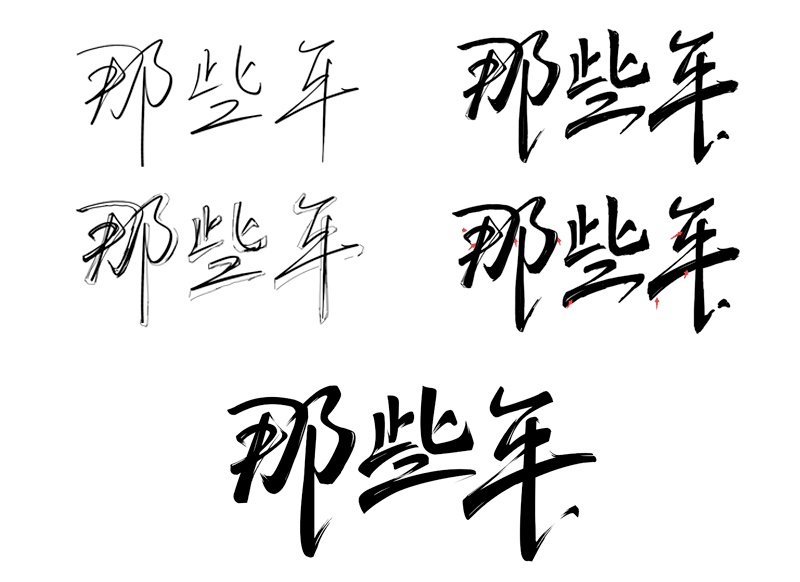 那些年 那些年
那些年 那些年
那些年